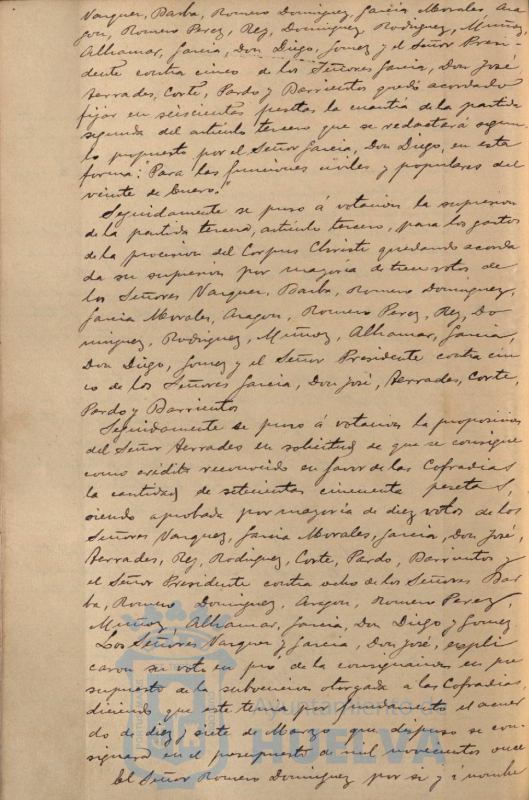 Vazquez, Barba, Romero Dominguez, Garcia Morales, Ara-
gon, Romero Perez, Rey, Dominguez, Rodriguez, Muñoz,
Alhamar, Garcia, Don Diego, Gomez y el Señor Presi-
dente contra cinco de los Señores Garcia, Don José,
Terrades, Corte, Pardo y Barrientos quedó acordado
fijar en seiscientas pesetas la cuantia de la partida
segunda del articulo tercero que se redactará segun
lo propuesto por el Señor Garcia, Don Diego, en esta
forma: "Para las funciones civiles y populares del
veinte de Enero."
Seguidamente se puso á votacion la supresion
de la partida tercera, articulo tercero, para los gastos
de la procesion del Corpus Christi quedando acorda
da su supresion por mayoria de trece votos de
los Señores Vazquez, Barba, Romero Dominguez,
Garcia Morales, Aragon, Romero Perez, Rey, Do
minguez, Rodriguez, Muñoz, Alhamar, Garcia,
Don Diego, Gomez y el Señor Presidente contra cin
co de los Señores Garcia, Don José, Terrades, Corte,
Pardo y Barrientos
Seguidamente se puso á votacion la proposicion
del Señor Terrades en solicitud de que se consigne
como crédito reconocido en favor de las Cofradias
la cantidad de setecientas cincuenta pesetas,
siendo aprobada por mayoria de diez votos de los
Señores Vazquez, Garcia Morales, Garcia, Don José,
Terrades, Rey, Rodriguez, Corte, Pardo, Barrientos y
el Señor Presidente contra ocho de los Señores Bar
ba, Romero Dominguez, Aragon, Romero Perez,
Muñoz, Alhamar, Garcia, Don Diego y Gomez
Los Señores Vazquez y Garcia, Don José, expli
caron su voto en pro de la consignacion en pre
supuesto de la subvencion otorgada a las Cofradias,
diciendo que este tema por fundamento el acuer
do de diez y siete de Marzo que dispuso se con-
signara en el presupuesto de mil novecientos once
El Señor Romero Dominguez por si y a nombre
Ayuntamiento
HUELVA